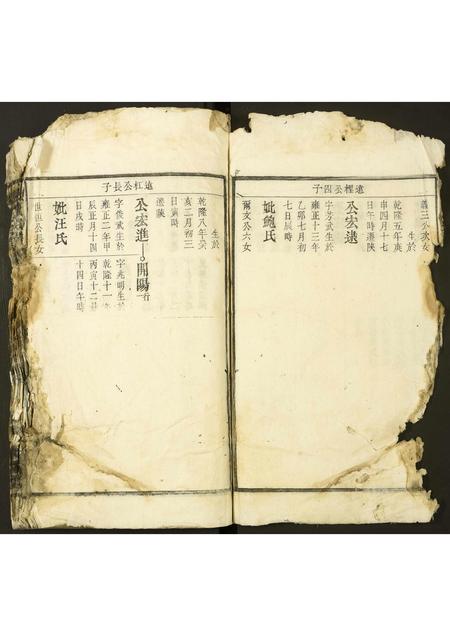 逵樫公四子
義三公次女
生於
乾隆五年庚
申四月十七
日午時遷陝
公宏逮
字芳武生於
雍正十三年
乙卯七月初
七日辰時
妣鮑氏
爾文公六女
逵杠公長子
生於
乾隆八年癸
亥二月初三
日寅時
遷陝
公宏進
開陽
行一
字俊武生於
雍正二年甲
辰正月十四
日戌時
字兆明生於
乾隆十一年
丙寅十二月
十四日午時
妣汪氏
世恒公長女